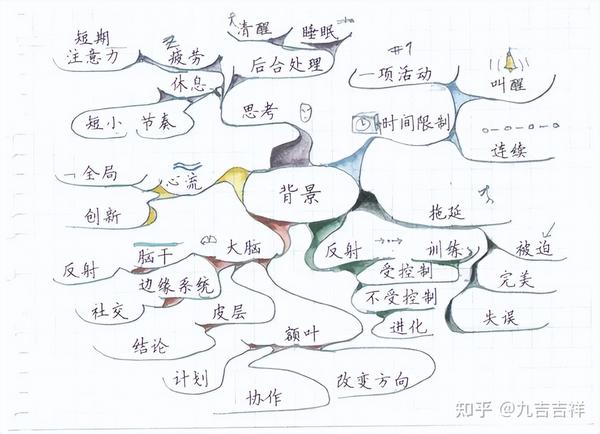 短期
注意力
疲劳
清醒
睡眠
后台处理
休息
短小
节奏
思考
#1
一项活动
叫醒
时间限制
连续
全局
心流
创新
背景
拖延
反射
脑干
大脑
边缘系统
社交
皮层
结论
额叶
计划
协作
改变方向
反射
训练
受控制
不受控制
进化
被迫
完美
失误
知乎 @九吉吉祥